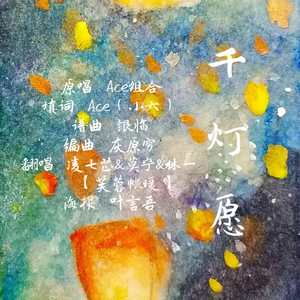 千灯愿
原唱 Ace组合
填词 Ace（小六）
谱曲 银临
编曲 灰原穷
翻唱 凌七芷&莫宁&林一
【芙蓉帐暖】
海报 叶言吾